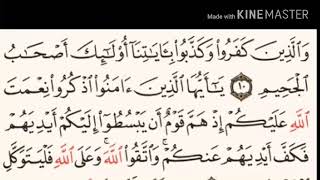 Made with KINEMASTER
وَالَّذِينَ كَفَرُوا وَكَذَّبُوا بِـَٔايَاتِنَا أُوْلَٰٓئِكَ أَصْحَابُ
الْجَحِيمِ ١٠ يَٰٓأَيُّهَا الَّذِينَ ءَامَنُوا اذْكُرُوا نِعْمَتَ
اللَّهِ عَلَيْكُمْ إِذْ هَمَّ قَوْمٌ أَنْ يَبْسُطُوٓا إِلَيْكُمْ أَيْدِيَهُمْ
فَكَفَّ أَيْدِيَهُمْ عَنكُمْ ۖ وَاتَّقُوا اللَّهَ ۚ وَعَلَى اللَّهِ فَلْيَتَوَكَّلِ